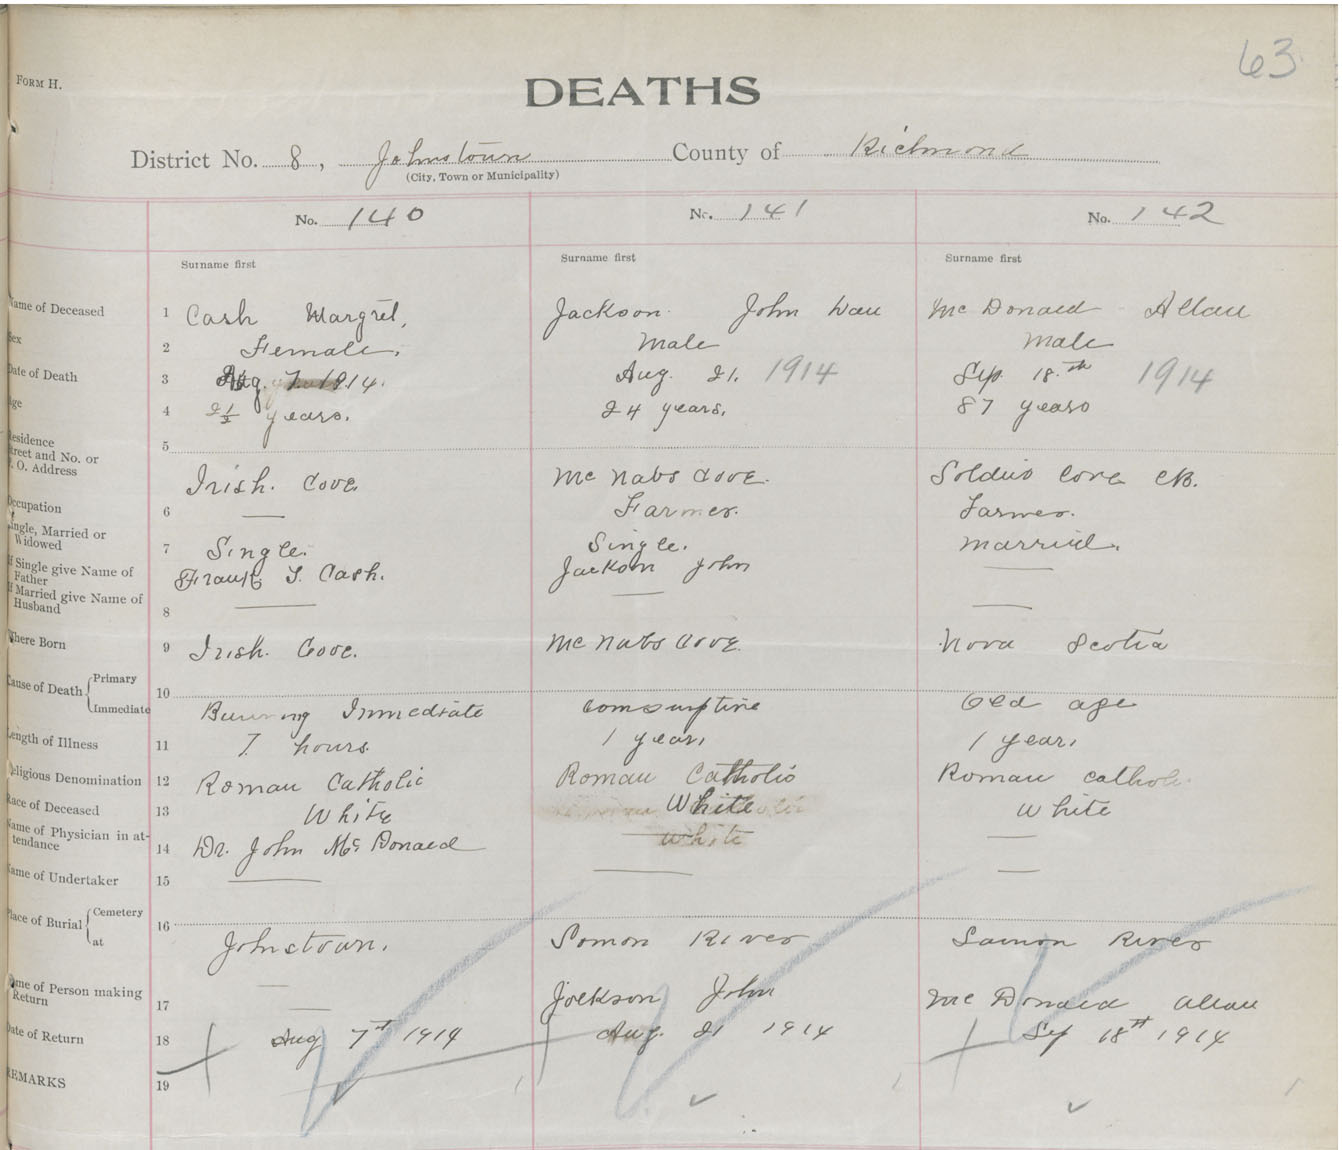 63
FORM H.
DEATHS
District No. 8, Johnstown County of Richmond
(City, Town or Municipality)
No. 140 No. 141 No. 142
Surname first Surname first Surname first
Name of Deceased 1 Cash Margret, Jackson John Dan McDonald Allan
Sex 2 Female. Male Male
Date of Death 3 Aug. 7. 1914. Aug. 21. 1914 Sep. 18.th 1914
Age 4 2 1/2 years. 24 years. 87 years
Residence 5
Street and No. or
P. O. Address Irish. Cove McNabs Cove. Soldiers Cove CB.
Occupation 6 — Farmer. Farmer.
Single, Married or
Widowed 7 Single. Single. Married.
If Single give Name of
Father Frank J. Cash. Jackson John —
If Married give Name of
Husband 8 — — —
Where Born 9 Irish. Cove. McNabs Cove. Nova Scotia
Cause of Death Primary 10
Immediate Burning Immediate Comsumptine Old age
Length of Illness 11 7. hours. 1 year, 1 year,
Religious Denomination 12 Roman Catholic Roman Catholic Roman Catholic
Race of Deceased 13 White White White
Name of Physician in at-
tendance 14 Dr. John McDonald White —
Name of Undertaker 15 — — —
Place of Burial Cemetery 16
at Johnstown. Somon River Samon River
Name of Person making
Return 17 — Jackson John McDonald Allan
Date of Return 18 Aug 7th 1914 Aug. 21 1914 Sep 18th 1914
REMARKS 19